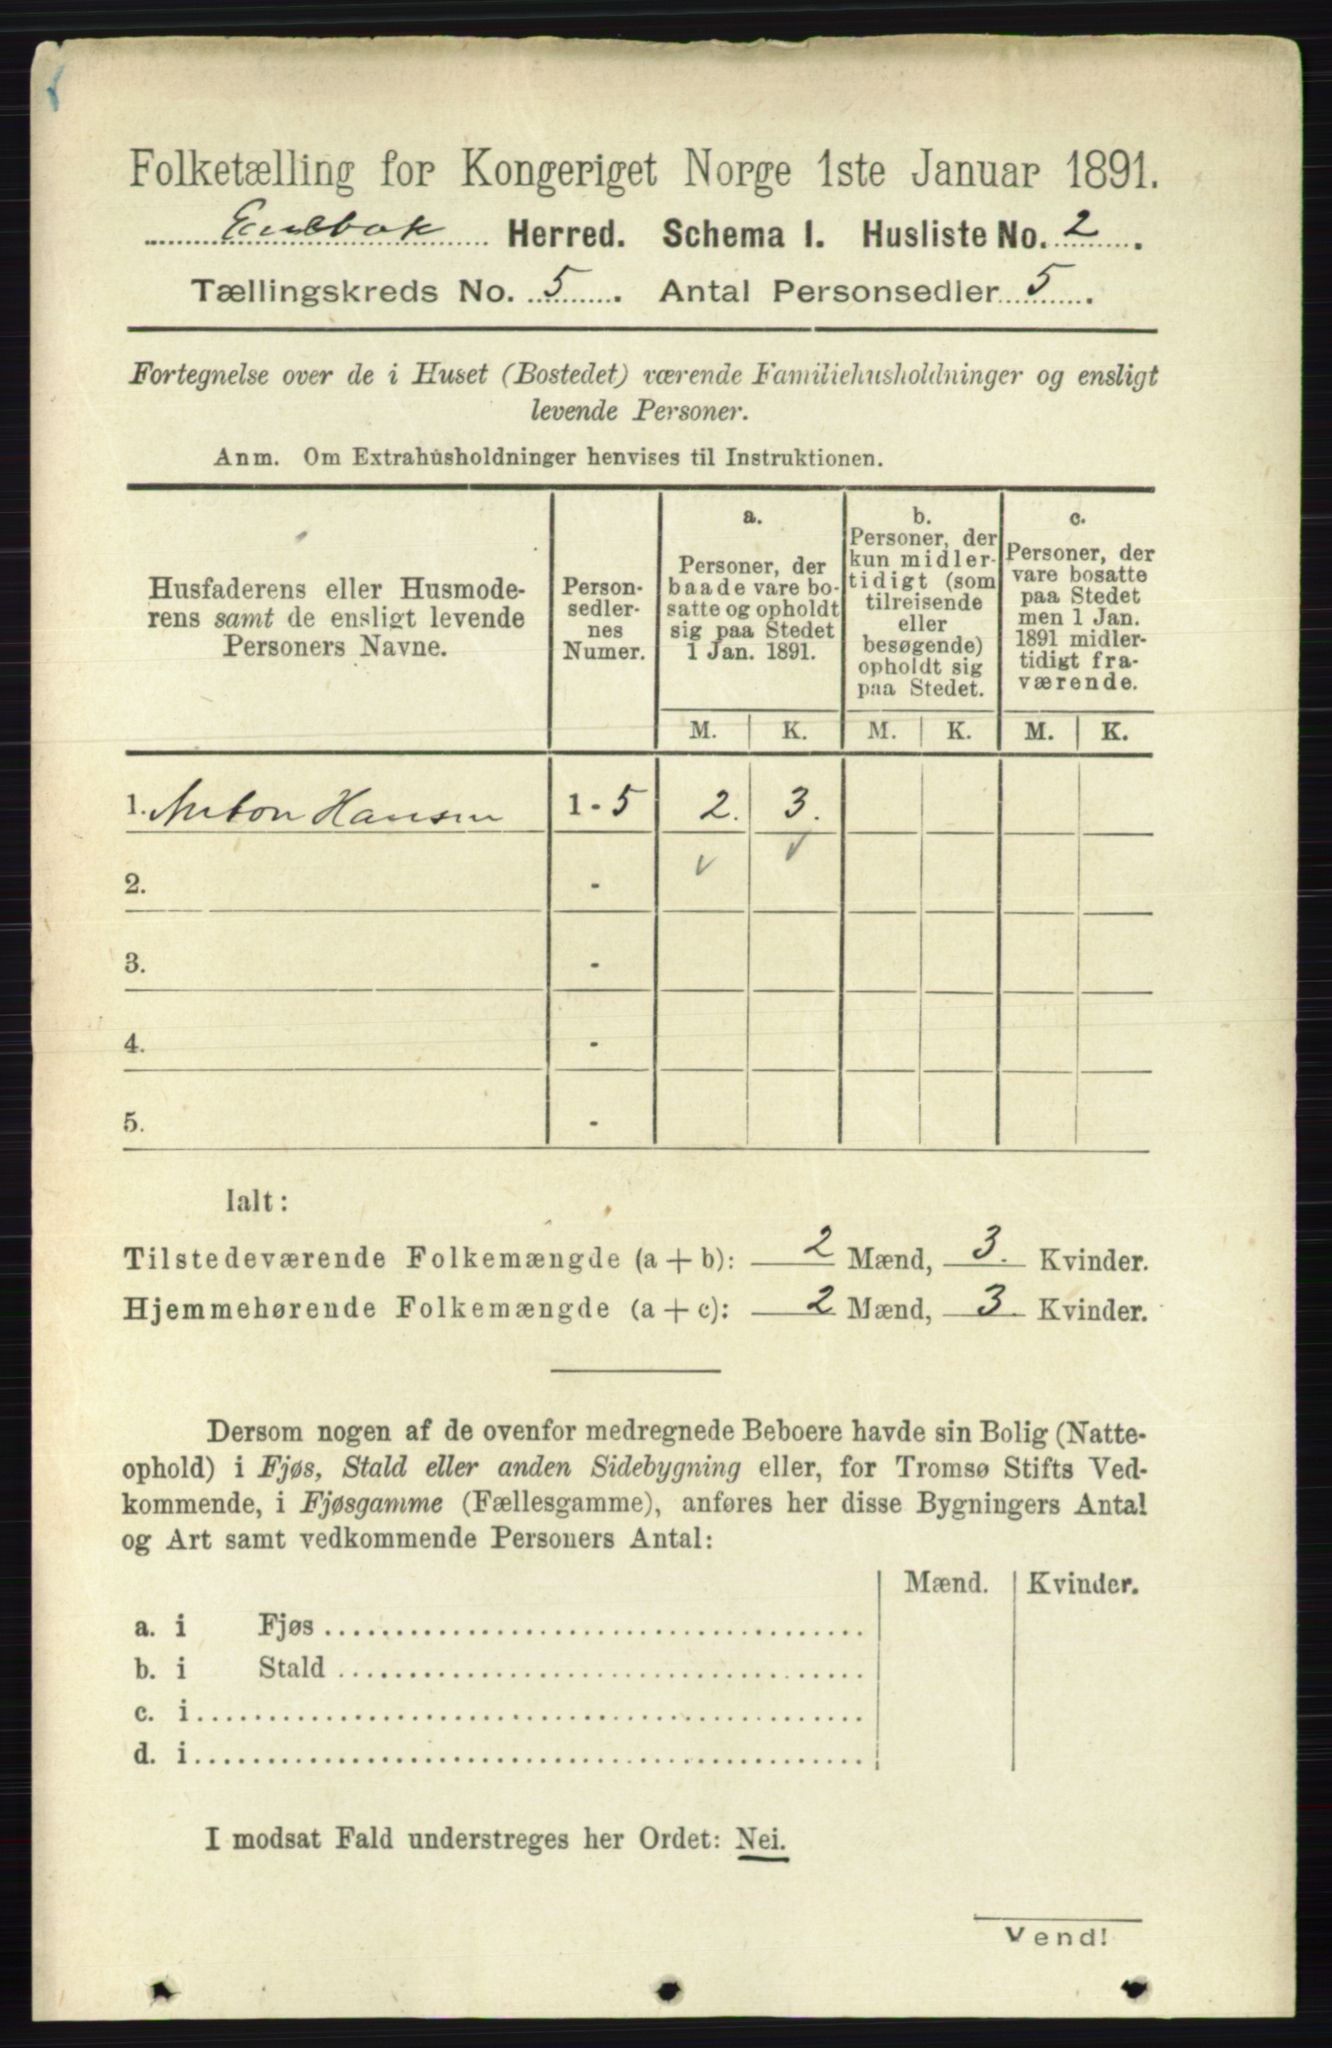 Folketælling for Kongeriget Norge 1ste Januar 1891.
Enebak Herred. Schema I. Husliste No. 2.
Tællingskreds No. 5. Antal Personsedler 5.
Fortegnelse over de i Huset (Bostedet) værende Familiehusholdninger og ensligt
levende Personer.
Anm. Om Extrahusholdninger henvises til Instruktionen.
Husfaderens eller Husmode-
rens samt de ensligt levende
Personers Navne.
Person-
sedler-
nes
Numer.
a.
Personer, der
baade vare bo-
satte og opholdt
sig paa Stedet
1 Jan. 1891.
b.
Personer, der
kun midler-
tidigt (som
tilreisende
eller
besøgende)
opholdt sig
paa Stedet.
c.
Personer, der
vare bosatte
paa Stedet
men 1 Jan.
1891 midler-
tidigt fra-
værende.
M. K. M. K. M. K.
1. Anton Hansen 1 - 5 2. 3.
2. -
3. -
4. -
5. -
Ialt:
Tilstedeværende Folkemængde (a + b): 2 Mænd, 3. Kvinder.
Hjemmehørende Folkemængde (a + c): 2 Mænd, 3 Kvinder.
Dersom nogen af de ovenfor medregnede Beboere havde sin Bolig (Natte-
ophold) i Fjøs, Stald eller anden Sidebygning eller, for Tromsø Stifts Ved-
kommende, i Fjøsgamme (Fællesgamme), anføres her disse Bygningers Antal
og Art samt vedkommende Personers Antal:
Mænd. Kvinder.
a. i Fjøs
b. i Stald
c. i
d. i
I modsat Fald understreges her Ordet: Nei.
Vend!